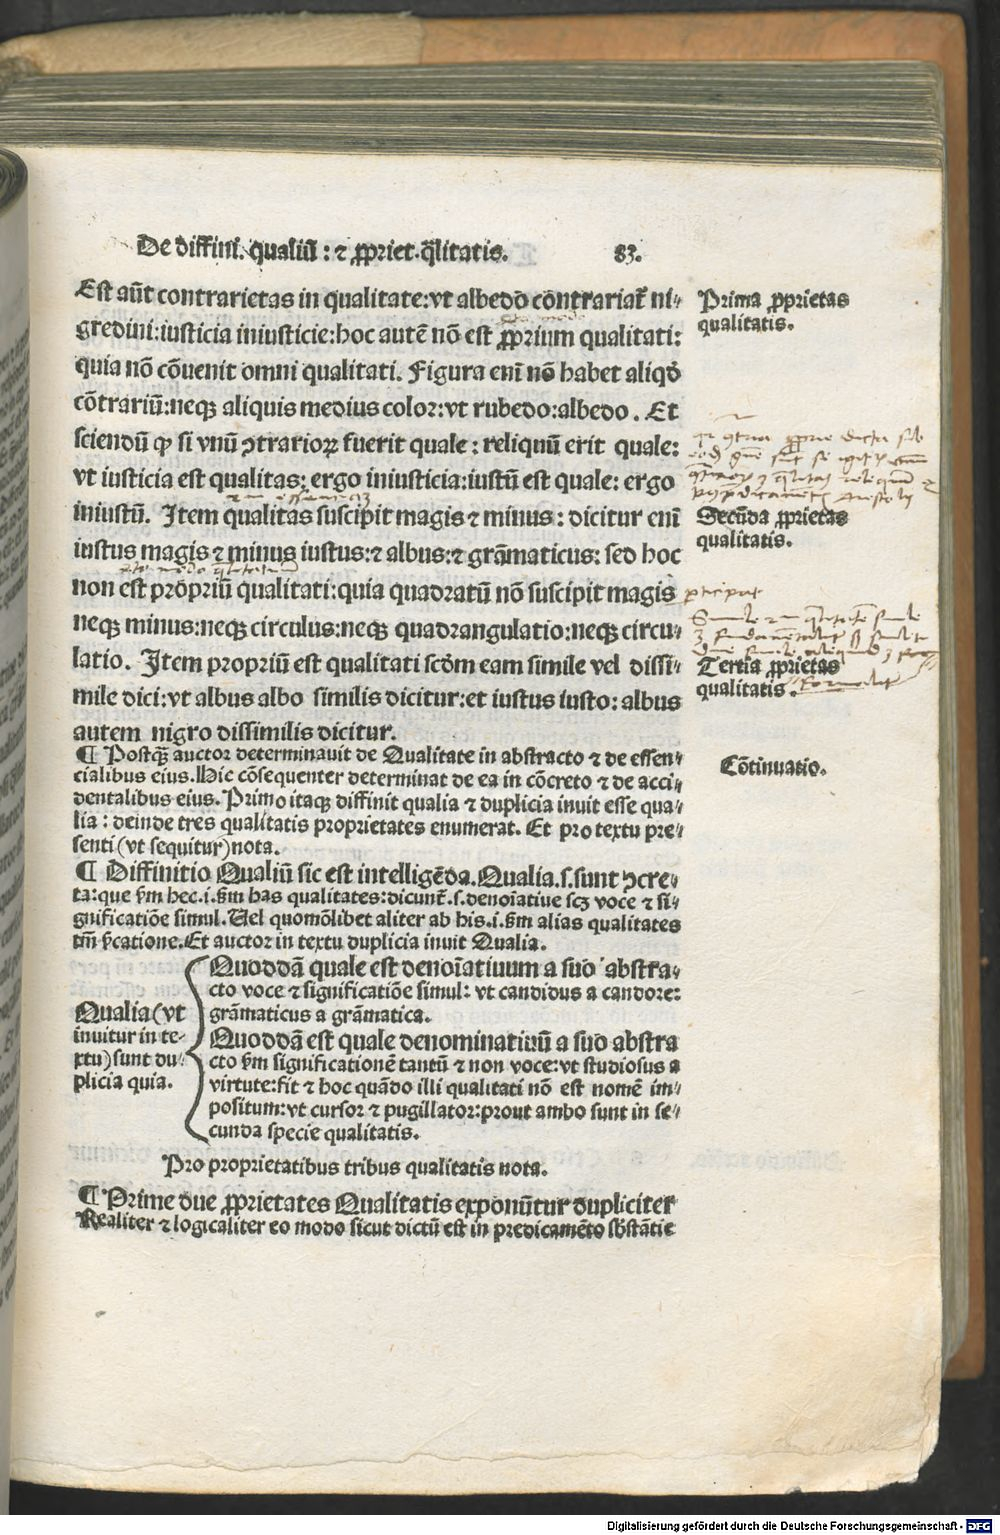 De diffini. qualiũ: ⁊ ꝓpriet. q̃litatis. 83.
Est aũt contrarietas in qualitate: vt albedo contrariat᷑ ni⸗
gredini: iusticia iniusticie: hoc autẽ nõ est ꝓprium qualitati:
quia nõ cõuenit omni qualitati. Figura eni᷑ nõ habet aliqd̓
cõtrariũ: neqꝫ aliquis medius color: vt rubedo: albedo. Et
sciendũ ꝙ si vnũ ꝯtrarioꝝ fuerit quale: reliquũ erit quale:
vt iusticia est qualitas: ergo iniusticia: iustũ est quale: ergo
iniustũ. Item qualitas suscipit magis ⁊ minus: dicitur eni᷑
iustus magis ⁊ minus iustus: ⁊ albus: ⁊ grãmaticus: sed hoc
non est propriũ qualitati: quia quadratũ nõ suscipit magis
neqꝫ minus: neqꝫ circulus: neqꝫ quadrangulatio: neqꝫ circu⸗
latio. Item propriũ est qualitati scd̓m eam simile vel dissi⸗
mile dici: vt albus albo similis dicitur: et iustus iusto: albus
autem nigro dissimilis dicitur.
Prima ꝓprietas
qualitatis.
Secũda ꝓprietas
qualitatis.
Tertia ꝓprietas
qualitatis.
¶ Postqꝫ̃ auctor determinauit de Qualitate in abstracto ⁊ de essen⸗
cialibus eius. Hic cõsequenter determinat de ea in cõcreto ⁊ de acci⸗
dentalibus eius. Primo itaqꝫ diffinit qualia ⁊ duplicia inuit esse qua⸗
lia: deinde tres qualitatis proprietates enumerat. Et pro textu pre⸗
senti (vt sequitur) nota.
Cõtinuatio.
¶ Diffinitio Qualiũ sic est intelligẽda. Qualia .s. sunt ꝯcre⸗
ta: que ẜm hec .i. ẜm has qualitates: dicunt᷑ .s. denoĩatiue scꝫ voce ⁊ si⸗
gnificatiõe simul. Uel quomõlibet aliter ab his .i. ẜm alias qualitates
Et auctor in textu duplicia inuit Qualia.
Qualia (vt
inuitur in te⸗
xtu) sunt du⸗
plicia quia.
Quoddã quale est denoĩatiuum a suo abstra⸗
cto voce ⁊ significatiõe simul: vt candidus a candore:
grãmaticus a grãmatica.
Quoddã est quale denominatiuũ a suo abstra
cto ẜm significationẽ tantũ ⁊ non voce: vt studiosus a
virtute: fit ⁊ hoc quãdo illi qualitati nõ est nomẽ im⸗
positum: vt cursor ⁊ pugillator: prout ambo sunt in se⸗
cunda specie qualitatis.
Pro proprietatibus tribus qualitatis nota.
¶ Prime due ꝓprietates Qualitatis exponũtur dupliciter
Realiter ⁊ logicaliter eo modo sicut dictũ est in predicamẽto sb̓stãtie
Digitalisierung gefördert durch die Deutsche Forschungsgemeinschaft - DFG